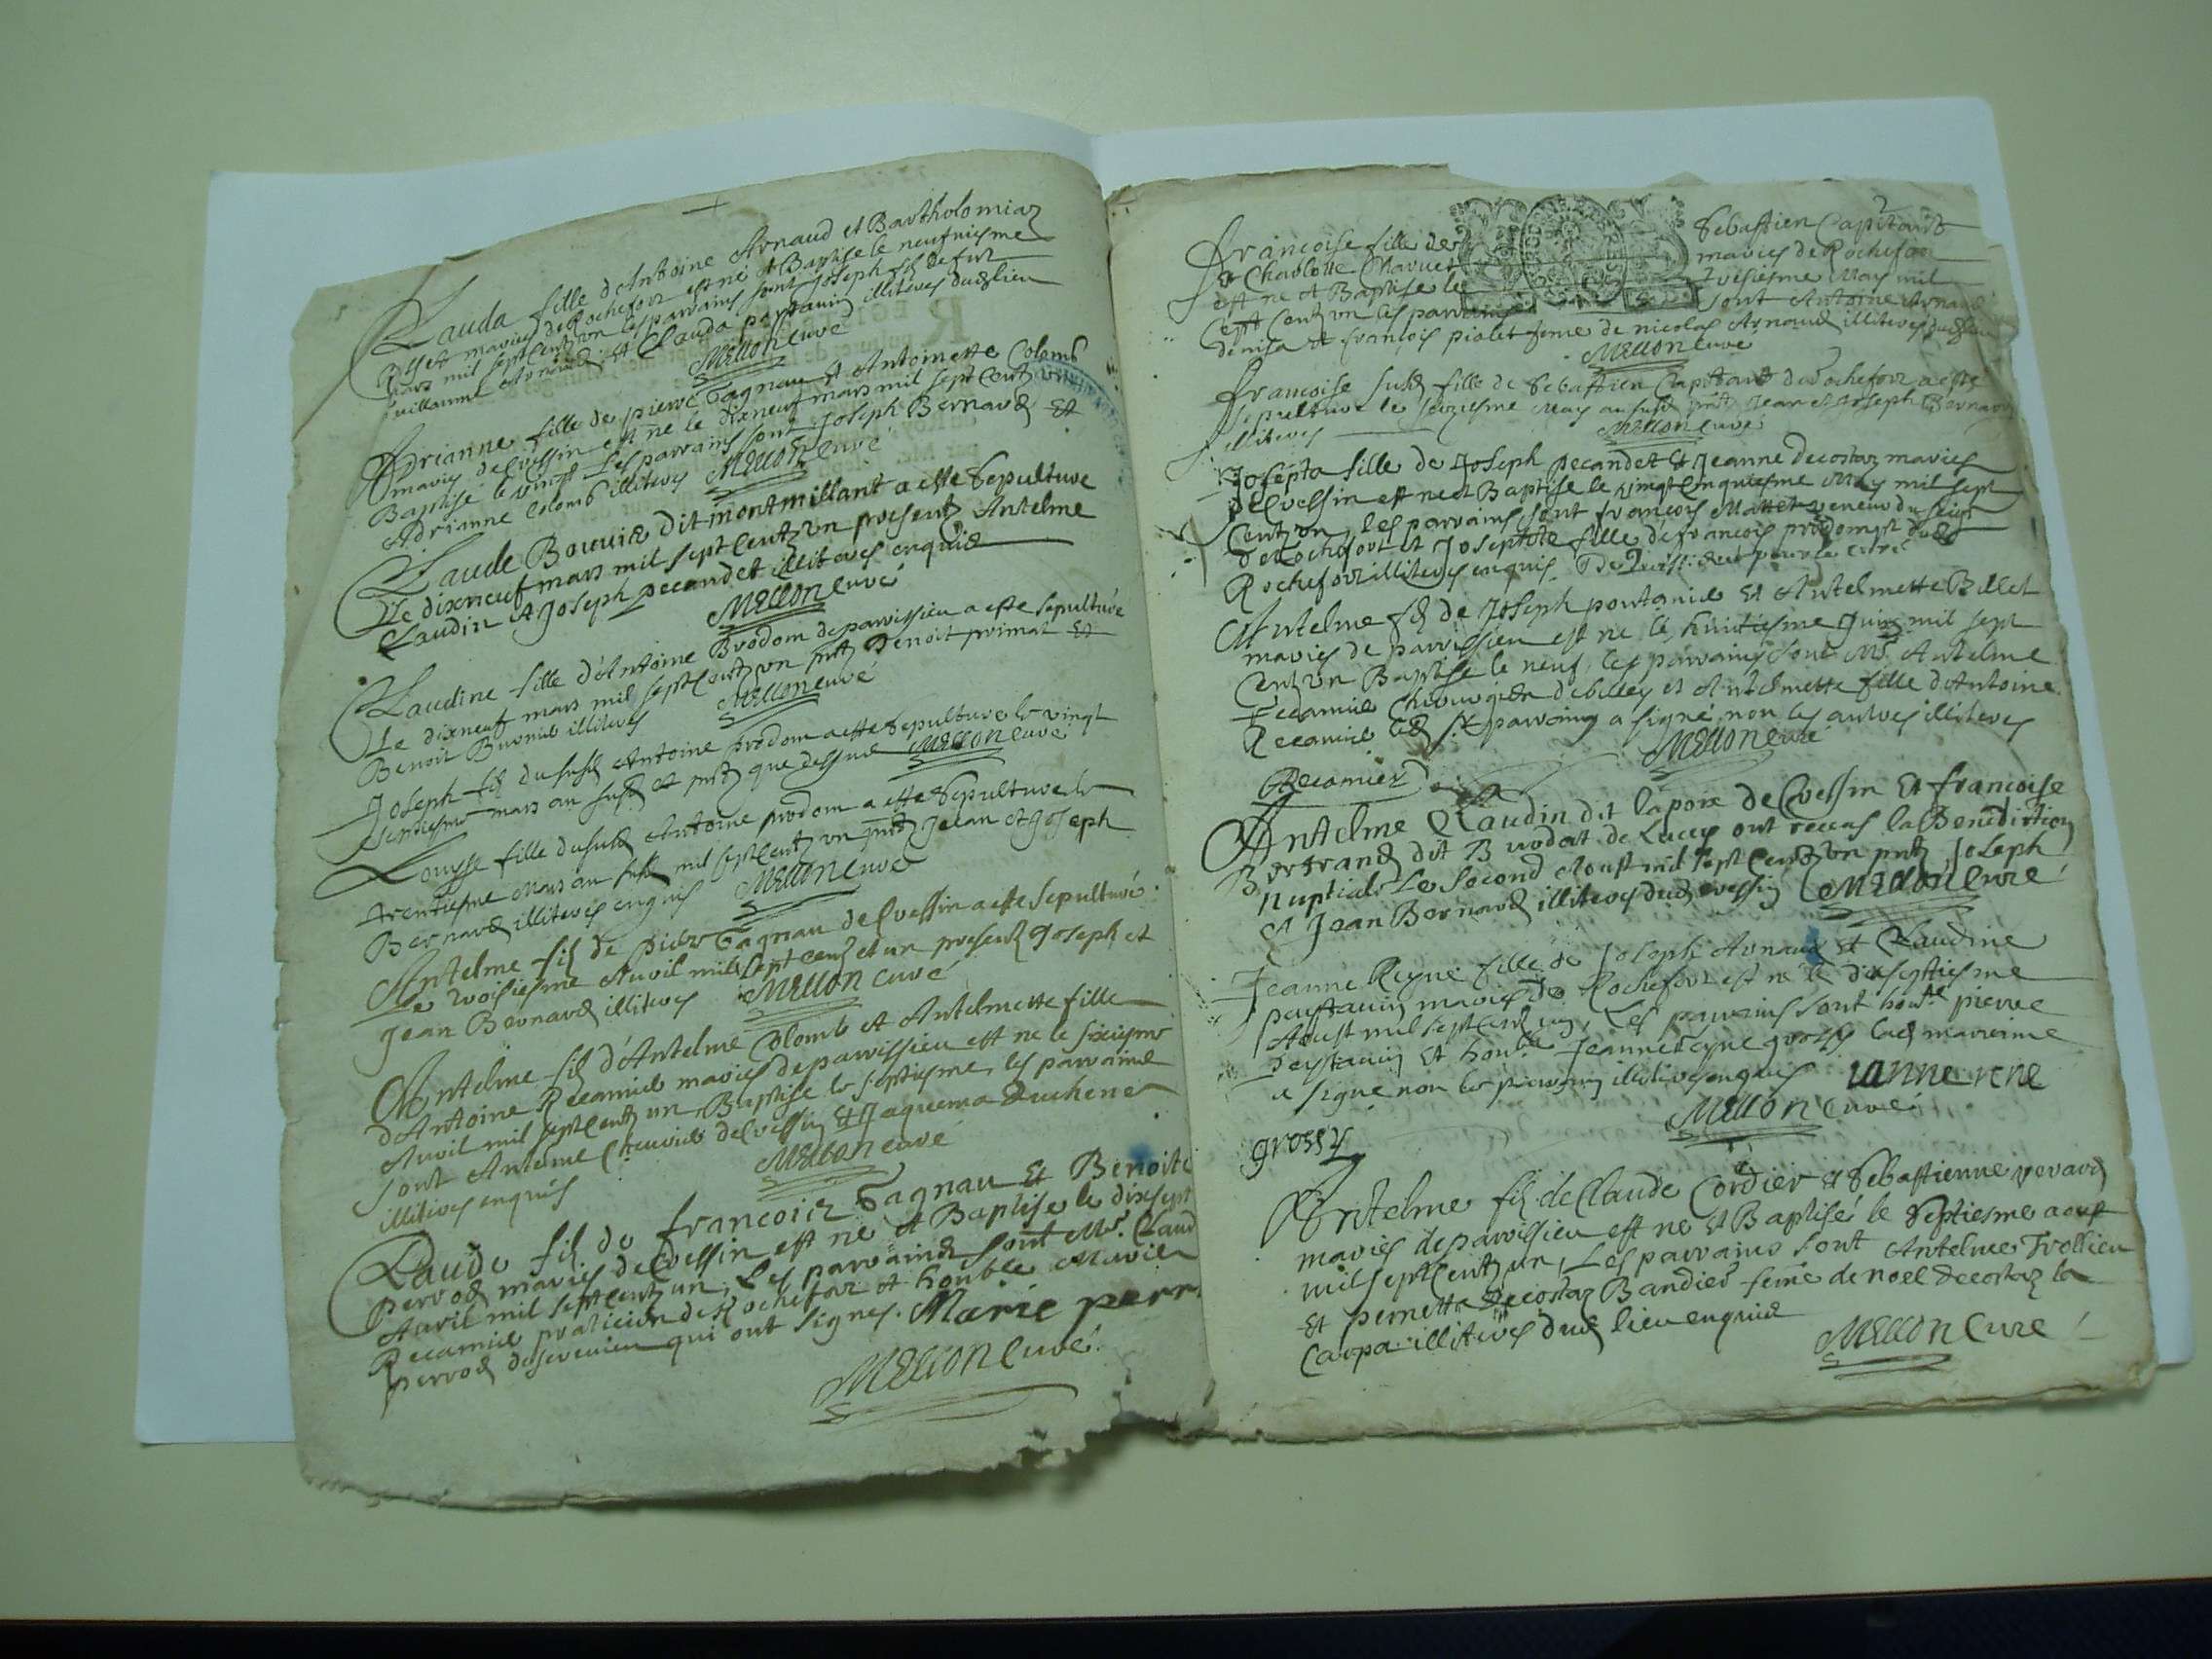 Clauda fille d'Antoine Arnaud et Bartholomiaz
maries de Rochefort est né et Baptise le neufviesme
mars mil sept centz un les parrains sont Joseph fils de feu
Guillaume Arnaud et Clauda paystauin illiteres dudt lieu
Mellon curé
Adrianne fille de pierre Gagnau et Antoinette Colomb
maries de Cuessin est né le dixneuf mars mil sept centz un
Baptisé le vingt Les parrains sont Joseph Bernard et
Adrianne Colomb illiteres Mellon curé
Claude Bouuier dit montmillant a esté Sepulture
Le dixneuf mars mil sept centz un presentz Antelme
Claudin et Joseph pecandet illiteres enquis
Mellon curé
Claudine fille d'Antoine Prodom de parrissieu a esté sepulturé
Le dixneuf mars mil sept centz un pntz Benoit primat et
Benoit illiteres Mellon curé
Joseph fils du susd Antoine prodom a esté Sepulture le vingt
septiesme mars an susd et pntz que dessus Mellon curé
Louyse fille du susd Antoine prodom a esté Sepulture le
trentiesme Mars an susd mil sept centz un pntz Jean et Joseph
Bernard illiteres enquis Mellon curé
Antelme fils de pierre Gagnau de Cuessin a esté sepulturé
Le troisiesme Auvil mil sept centz et un presentz Joseph et
Jean Bernard illiteres Mellon curé
Antelme fils d'Antelme Colomb et Antelmette fille
d'Antoine Recamier maries de parrissieu est ne le sixiesme
Auvil mil sept centz un, Baptise le septiesme, les parrains
sont Antelme de Cuessin et Jaquema Duchene
illiteres enquis Mellon curé
Claude fils de francois Gagnau Et Benoite
perrod maries de Cuessin est ne et Baptise le dixsept
Auril mil sept centz un, Les parrains sont Mr. Claud
Recamier praticien de Rochefort et honble Marie
perrod qui ont signes. Marie perr
Mellon curé
2
francoise fille de Sebastien Capitant
et Charlotte Charuet maries de Rochefort
est ne et Baptise le troisiesme May mil
sept centz un les parrains sont Antoine Arnaud
et françois piolet feme de nicolas Arnaud illiteres dudt lieu
Mellon curé
francoise susd fille de Sebastien Capitant de Rochefort a esté
sepulture le seiziesme May an susd pntz Jean et Joseph Bernard
illiteres Mellon curé
Josepta fille de Joseph pecandet et Jeanne decostaz maries
de Cuessin est ne et Baptise le vingt cinquiesme May mil sept
centz un, les parrains sont francois Mattet
de Rochefort et Josephte fille de francois prodom
Rochefort illiteres enquis pour le curé
Antelme fils de Joseph pontanier et Antelmette Billet
maries de parrissieu est ne le huitiesme Juin mil sept
centz un Baptise le neuf, les parrains sont Mr Antelme
Recamier Chirurgien de belley et Antelmette fille d'Antoine
Recamier led Sr parraing a signé non les autres illiteres
Recamier Mellon curé
Antelme Claudin dit lapoix de Cuessin Et francoise
Bertrand dit Brodat de Lucey ont receus la Benediction
Nuptiale Le Second Aoust mil sept centz un pntz Joseph
et Jean Bernard illiteres dud Cuessin Mellon curé
Jeanne Reyne fille de Joseph Arnaud Et Claudine
paystauin maries de Rochefort est ne le dixseptiesme
Aoust mil sept centz un, Les parrains sont honble pierre
Peystauin Et honble Jeanne Reyne grossy lad marreine
a signe non le parraing illitere enquis ianne rene
grossy Mellon curé
Antelme fils de Claude Cordier et Sebastienne perard
maries de parrissieu est ne Et Baptisé le septiesme aoust
mil sept centz un, Les parrains sont Antelme Trollieu
Et pernette decostaz Bandier feme de noel decostaz la
Carpa illiteres dud lieu enquis
Mellon curé